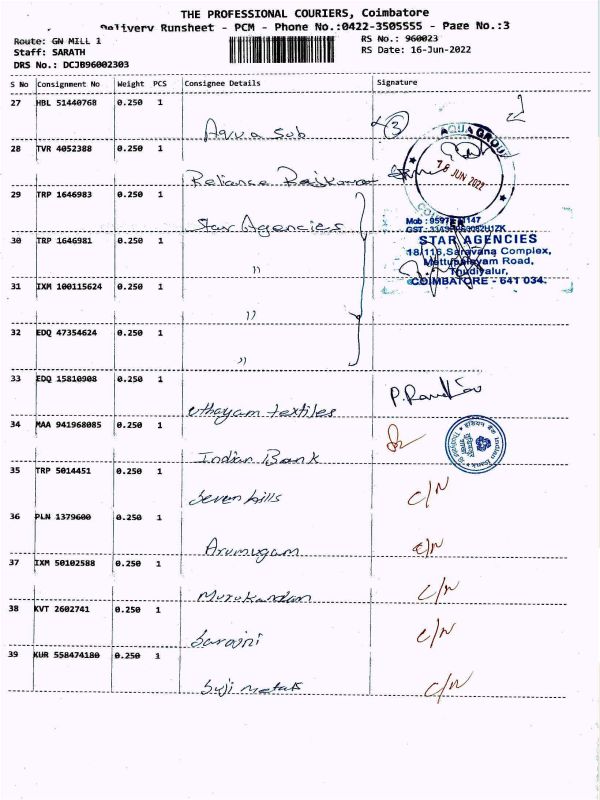 THE PROFESSIONAL COURIERS, Coimbatore
Delivery Runsheet - PCM - Phone No.:0422-3505555 - Page No.:3
Route: GN MILL 1
RS No.: 960023
Staff: SARATH
RS Date: 16-Jun-2022
DRS No.: DCJB96002303
S No Consignment No Weight PCS Consignee Details Signature
27 HBL 51440768 0.250 1
Aqua Sub
3
28 TVR 4052388 0.250 1
AQUA GROUP
18 JUN 2022
Reliance Rajkumar
29 TRP 1646983 0.250 1
Star Agencies
30 TRP 1646981 0.250 1
STAR AGENCIES
18/116,Saravana Complex,
Mettupalayam Road,
Thudiyalur,
COIMBATORE - 641 034.
"
31 IXM 100115624 0.250 1
"
32 EDQ 47354624 0.250 1
"
33 EDQ 15810908 0.250 1
Uthayam textiles
34 MAA 941968085 0.250 1
Indian Bank
Indian Bank
35 TRP 5014451 0.250 1
Seven hills C/N
36 PLN 1379600 0.250 1
Arumugam C/N
37 IXM 50102588 0.250 1
Murukandan C/N
38 KVT 2602741 0.250 1
Sarojni C/N
39 KUR 558474180 0.250 1
Suji metals C/N